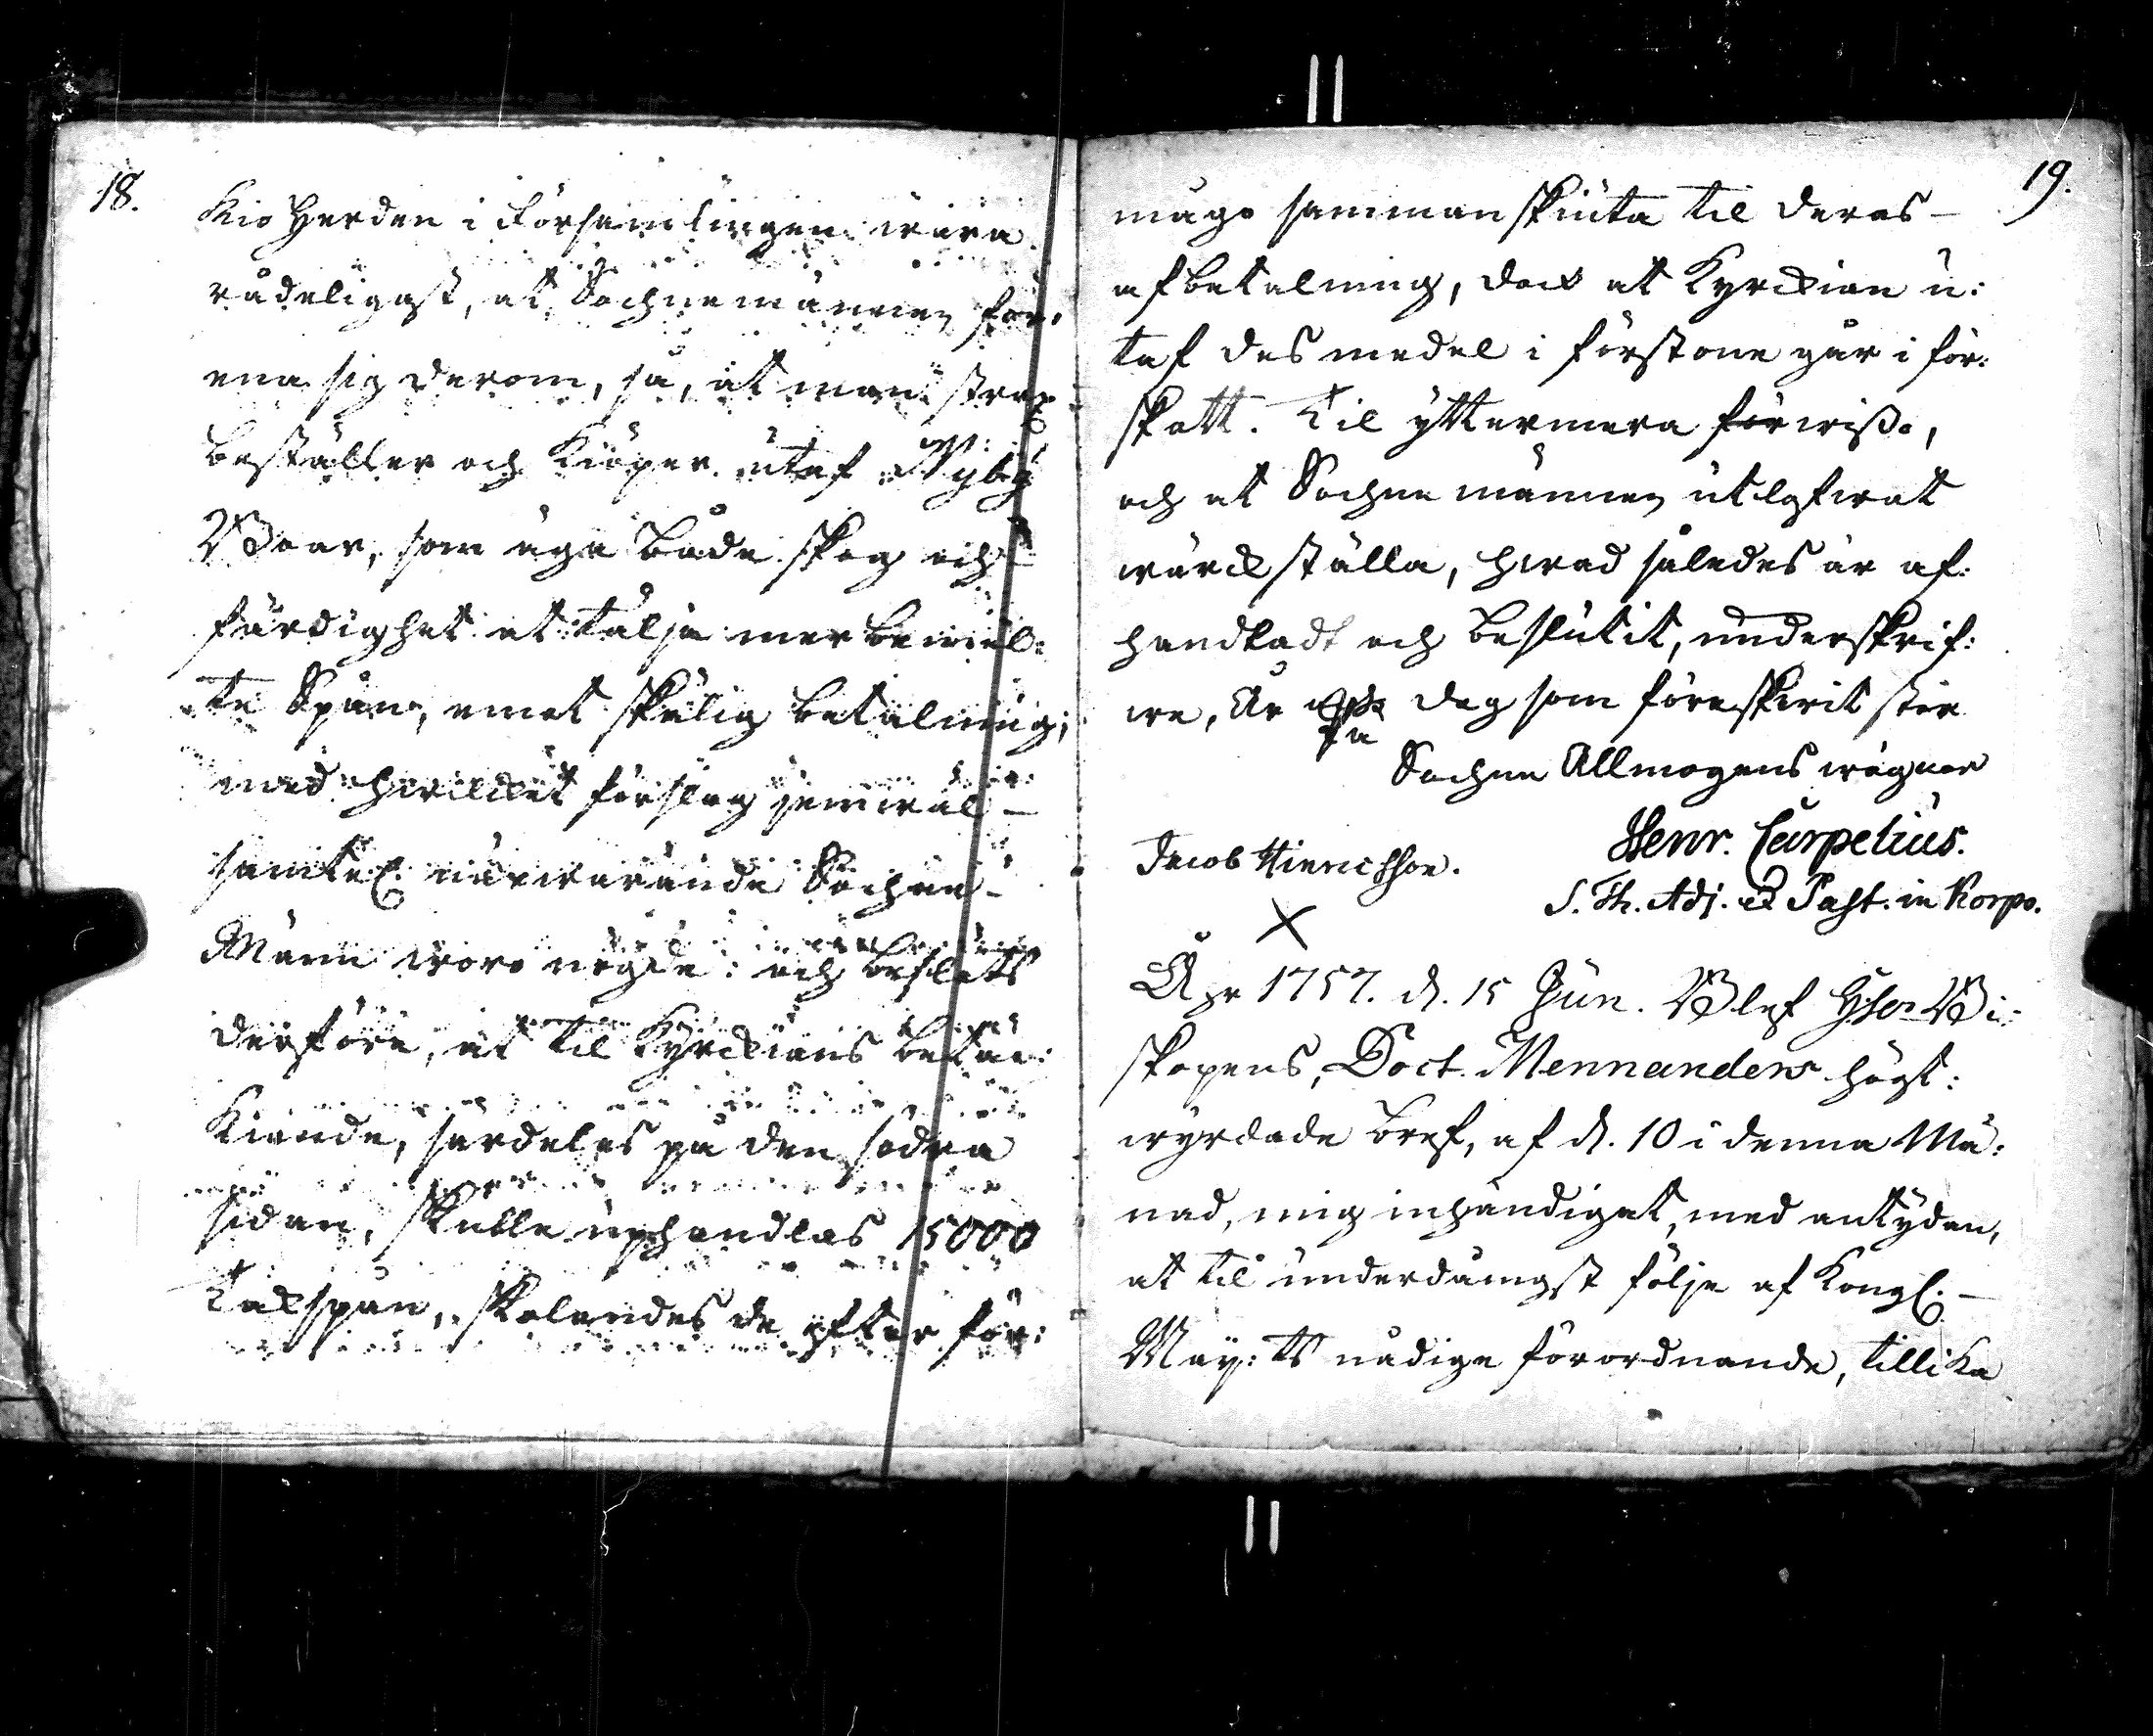 18.
Kio Herden i Församlingen wara
rådeligast, at Sochnemännen för:
ena sig derom, så, at man strax
beställer och Kiöper utaf Nyby
Boar, som äga både skog och
färdighet at tälja mer bemäl:
te Spån, emot skälig betalning;
med hwilcket förslag jemwäl
samtel. närwarande Sochne-
Männ woro nögde: och beslöts
derföre, at til Kyrckians betäc:
Kiande, serdeles på den södra
sidan, skulle uphandlas 15000
Takspån, skolandes de efter för:
19.
måga sammanskiuta til deras
afbetalning, dock at Kyrckian u:
taf des medel i förstone går i för:
skott. Til yttermera förwisso,
och at Sochne männen utlofwat
wärckställa, hwad således är af:
handladt och beslutit, underskrif:
we, År och dag som föreskrewit står
på
Sochne Allmogens wägnar
Henr. Carpelius.
Jacob Hinricsson.
S. Th. Adj. & Past. in Korpo.
Åhr 1757. d. 15 Jun. Blef H:Her Bi:
skopens, Doct. Mennanders högt:
wyrdade bref, af d. 10 i denna Må:
nad, mig inhändigat, med antydan,
at til underdångst följe af Kongl.
May:ts nådige förordnande, tillika